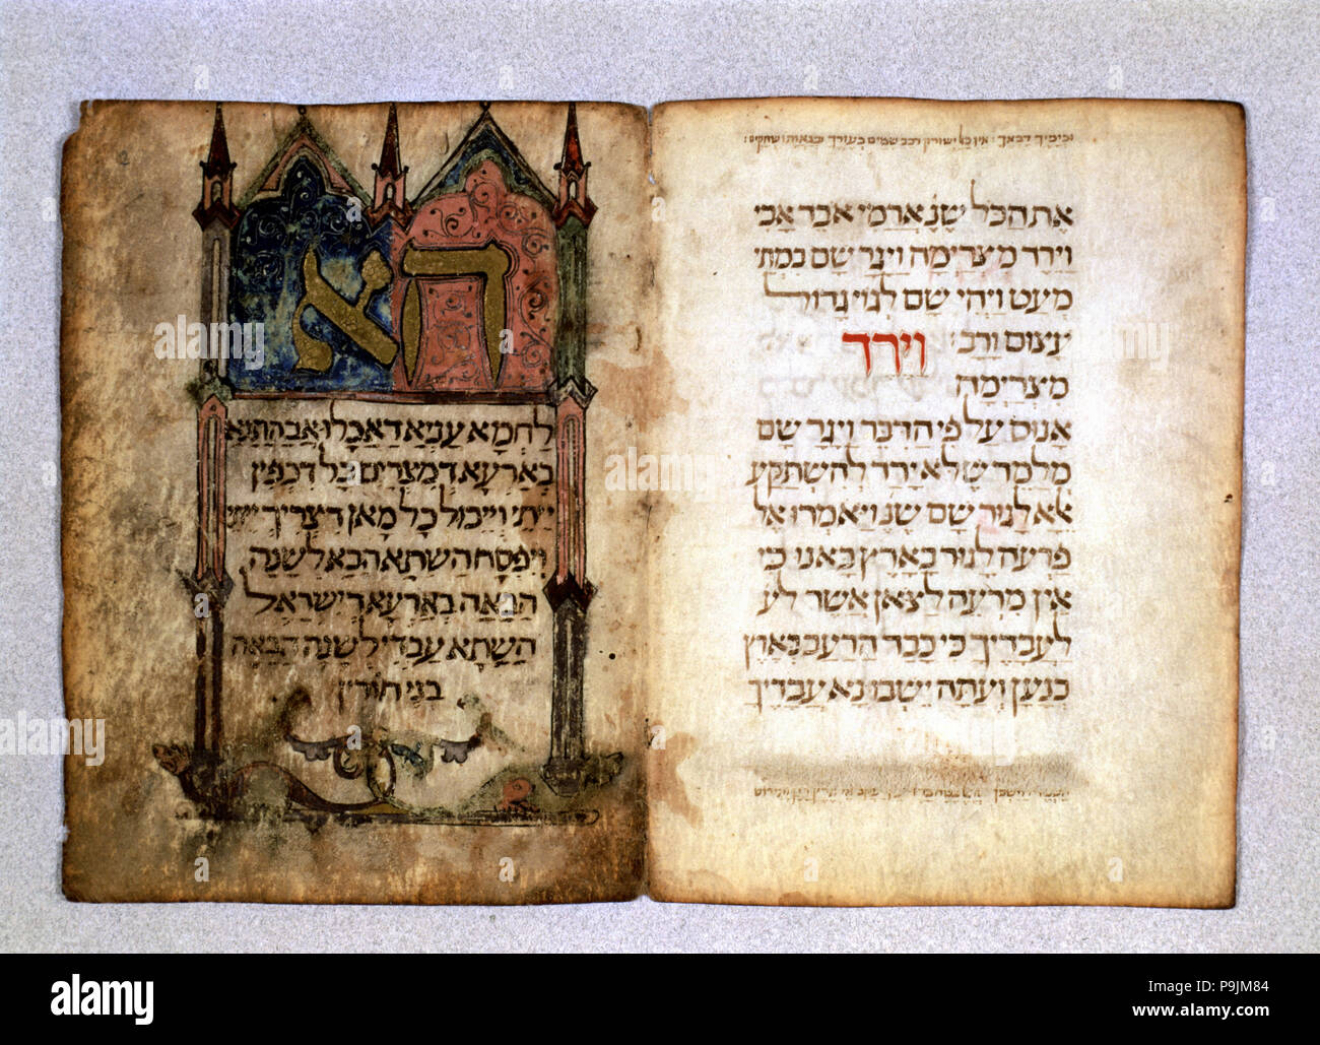 וכימיך דבאך : אין כאל ישורון רכב שמים בעזרך ובגאותו שחקים :
את הכל שנ׳ ארמי אבד אבי
וירד מצרימה ויגר שם במתי
מעט ויהי שם לגוי גדול
עצום ורב׳ וירד
מצרימה
אנוס על פי הדבר ויגר שם
מלמד שלא ירד להשתקע
אלא לגור שם שנ׳ ויאמרו אל
פרעה לגור בארץ באנו כי
אין מרעה לצאן אשר לע
לעבדיך כי כבד הרעב בארץ
כנען ועתה ישבו נא עבדיך
הא
לחמא עניא דאכלו אבהתנא
בארעא דמצרים כל דכפין
ייתי וייכול כל מאן דצריך ייתי
ויפסח השתא הכא לשנה
הבאה בארעא דישראל
השתא עבדי לשנה הבאה
בני חורין
alamy
alamy
Image ID: P9JM84
www.alamy.com